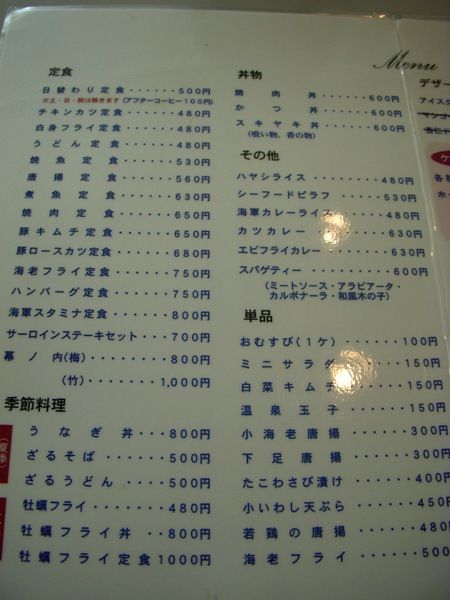 Menu
定食
日替わり定食・・・・・・・500円
※土・日・祝は除きます(アフターコーヒー100円)
チキンカツ定食・・・・・・480円
白身フライ定食・・・・・・480円
うどん定食・・・・・・・・480円
焼魚定食・・・・・・・・・530円
唐揚定食・・・・・・・・・560円
煮魚定食・・・・・・・・・630円
焼肉定食・・・・・・・・・650円
豚キムチ定食・・・・・・・650円
豚ロースカツ定食・・・・・680円
海老フライ定食・・・・・・750円
ハンバーグ定食・・・・・・750円
海軍スタミナ定食・・・・・800円
サーロインステーキセット・・・700円
幕ノ内(梅)・・・・・・・・800円
(竹)・・・・・・・1,000円
季節料理
(夏季)
うなぎ丼・・・800円
ざるそば・・・・・500円
ざるうどん・・・・500円
牡蠣フライ・・・・・480円
牡蠣フライ丼・・800円
牡蠣フライ定食1000円
丼物
焼肉丼・・・・・・600円
かつ丼・・・・・・600円
スキヤキ丼・・・・・・600円
(吸い物、香の物)
その他
ハヤシライス・・・・・・・480円
シーフードピラフ・・・・・530円
海軍カレーライス・・・・・480円
カツカレー・・・・・・・・630円
エビフライカレー・・・・・630円
スパゲティー・・・・・・・630円
(ミートソース・アラビアータ・
カルボナーラ・和風木の子)
単品
おむすび(1ケ)・・・・100円
ミニサラダ・・・・・150円
白菜キムチ・・・・・150円
温泉玉子・・・・・150円
小海老唐揚・・・・・300円
下足唐揚・・・・・300円
たこわさび漬け・・・・400円
小いわし天ぷら・・・・450
若鶏の唐揚・・・・・480
海老フライ・・・・・500
デザー
アイス
マンゴ
杏仁